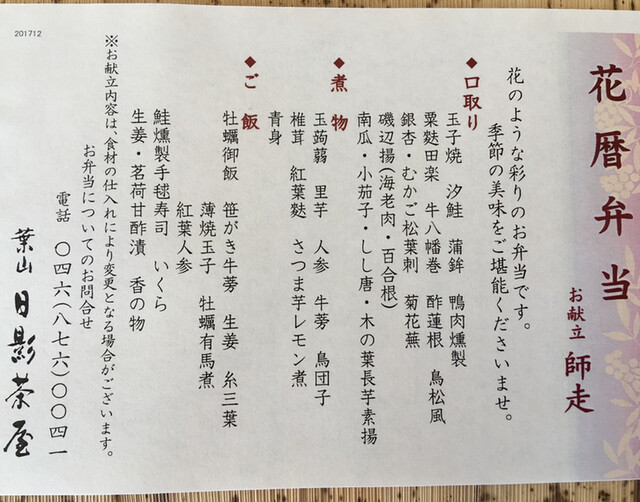 花暦弁当
お献立 師走
花のような彩りのお弁当です。
季節の美味をご堪能くださいませ。
◆口取り
玉子焼 汐鮭 蒲鉾 鴨肉燻製
粟麩田楽 牛八幡巻 酢蓮根 鳥松風
銀杏・むかご松葉刺 菊花蕪
磯辺揚(海老肉・百合根)
南瓜・小茄子・しし唐・木の葉長芋素揚
◆煮物
玉蒟蒻 里芋 人参 牛蒡 鳥団子
椎茸 紅葉麩 さつま芋レモン煮
青身
◆ご飯
牡蠣御飯 笹がき牛蒡 生姜 糸三葉
薄焼玉子 牡蠣有馬煮
紅葉人参
鮭燻製手毬寿司 いくら
生姜・茗荷甘酢漬 香の物
※お献立内容は、食材の仕入れにより変更となる場合がございます。
お弁当についてのお問合せ
電話 〇四六(八七六)〇〇四一
葉山 日影茶屋
201712